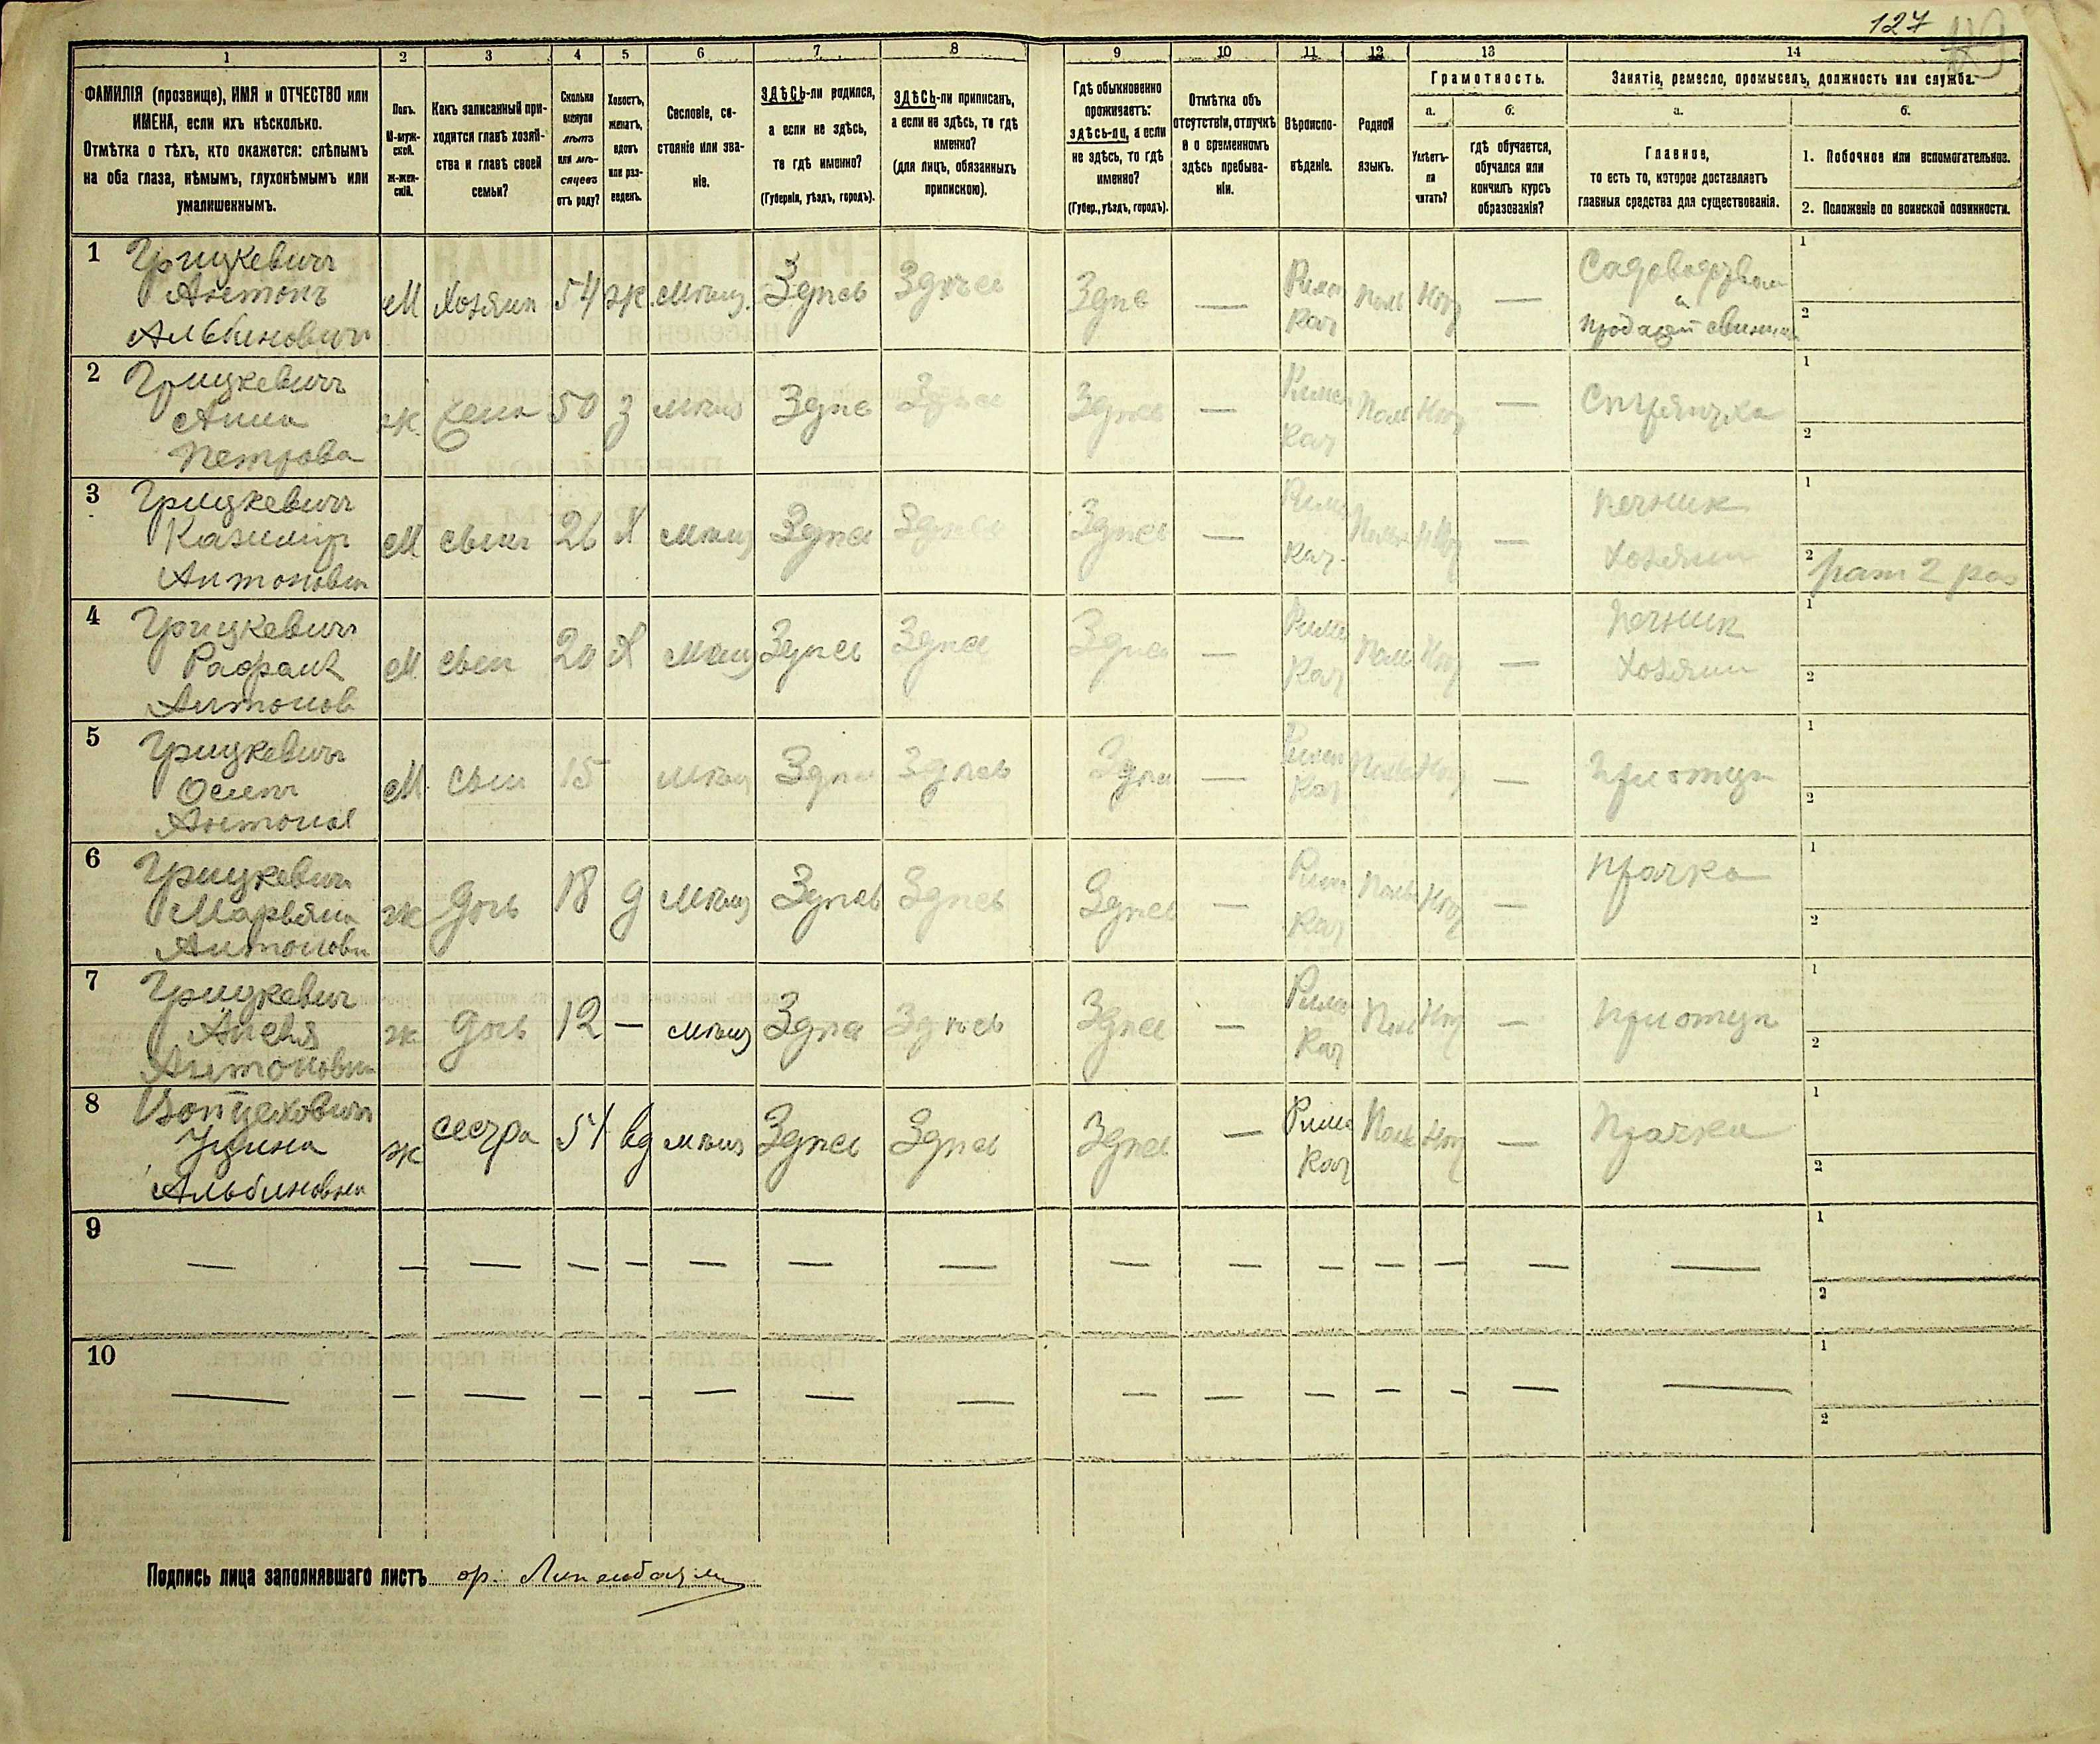 127
1 2 3 4 5 6 7 8 9 10 11 12 13 14
ФАМИЛІЯ (прозвище), ИМЯ и ОТЧЕСТВО или
ИМЕНА, если ихъ нѣсколько.
Отмѣтка о тѣхъ, кто окажется: слѣпымъ
на оба глаза, нѣмымъ, глухонѣмымъ или
умалишеннымъ.
Полъ.
М-муж-
ской.
ж-жен-
скій.
Какъ записанный при-
ходится главѣ хозяй-
ства и главѣ своей
семьи?
Сколько
минуло
лѣтъ
или мѣ-
сяцевъ
отъ роду?
Холостъ,
женатъ,
вдовъ
или раз-
веденъ.
Сословіе, со-
стояніе или зва-
ніе.
ЗДѢСЬ-ли родился,
а если не здѣсь,
то гдѣ именно?
(Губернія, уѣздъ, городъ).
ЗДѢСЬ-ли приписанъ,
а если не здѣсь, то гдѣ
именно?
(для лицъ, обязанныхъ
припискою).
Гдѣ обыкновенно
проживаетъ:
здѣсь-ли, а если
не здѣсь, то гдѣ
именно?
(Губер., уѣздъ, городъ).
Отмѣтка объ
отсутствіи, отлучкѣ
и о временномъ
здѣсь пребыва-
ніи.
Вѣроиспо-
вѣданіе.
Родной
языкъ.
Грамотность.
а.
Умѣетъ-
ли
читать?
б.
гдѣ обучается,
обучался или
кончилъ курсъ
образованія?
Занятіе, ремесло, промыселъ, должность или служба.
а.
Главное,
то есть то, которое доставляетъ
главныя средства для существованія.
б.
1. Побочное или вспомогательное.
2. Положеніе по воинской повинности.
1 Грицкевичъ
Антонъ М Хозяин 54 ж Мѣщ. Здѣсь Здѣсь Здѣс — Рим Кат Пол Нѣт — Садоводством
и
Альбинович продажей свиней
1
2
2 Грицкевичъ
Анна ж Жена 50 З мѣщ Здѣс Здѣсь Здѣсь — Римс Кат Пол Нѣт —
Петрова
1
2
3 Грицкевичъ
Казимир М сын 26 Х мѣщ Здѣс Здѣсь Здѣсь — Римс Кат. Польс Нѣт — Печник
Антонович Хозяин
1
2 рат 2 раз
4 Грицкевич
М сын 20 Х мѣщ Здѣсь Здѣс Здѣс — Римс Кат Пол Нѣт — Печник
Антонов Хозяин
1
2
5 Грицкевич
Осипъ М сын 15 мѣщ Здѣс Здѣсь Здѣс — Римс Кат Польс Нѣт — При отцѣ
Антонов
1
2
6 Грицкевич
Марьяна ж Дочь 18 д Мѣщ Здѣсь Здѣсь Здѣсь — Рим Кат Поль Нѣт — Прачка
Антоновн
1
2
7 Грицкевич
ж Дочь 12 — мѣщ Здѣс Здѣсь Здѣс — Римс Кат Пол Нѣт — При отцѣ
Антоновн
1
2
8 Войцехович
ж сестра 51 вд мѣщ Здѣсь Здѣсь Здѣсь — Римс Кат Поль Нѣт — Прачка
Альбиновна
1
2
9 — — — — — — — — — — — — — — —
1
2
10 — — — — — — — — — — — — — — —
1
2
Подпись лица заполнявшаго листъ